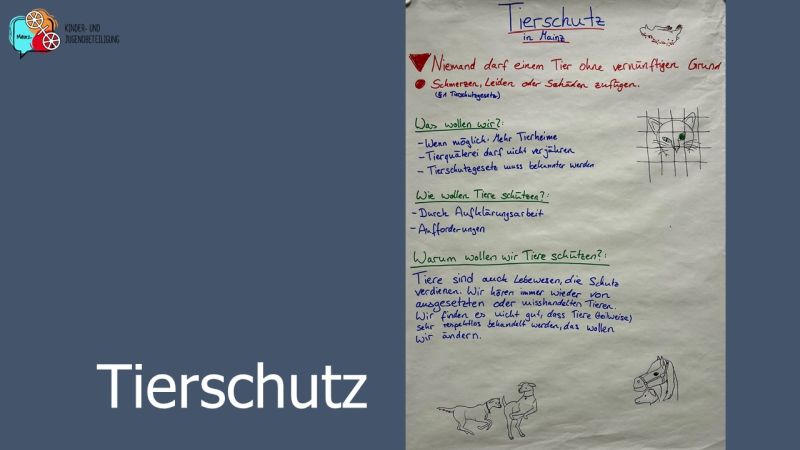 Mainz
KINDER- UND
JUGENDBETEILIGUNG
Tierschutz
in Mainz
Niemand darf einem Tier ohne vernünftigen Grund
Schmerzen, Leiden oder Schäden zufügen.
(§1 Tierschutzgesetz)
Was wollen wir?:
- Wenn möglich: Mehr Tierheime
- Tierquälerei darf nicht verjähren
- Tierschutzgesetz muss bekannter werden
Wie wollen Tiere schützen?:
- Durch Aufklärungsarbeit
- Aufforderungen
Warum wollen wir Tiere schützen?:
Tiere sind auch Lebewesen, die Schutz
verdienen. Wir hören immer wieder von
ausgesetzten oder misshandelten Tieren.
Wir finden es nicht gut, dass Tiere (teilweise)
sehr respektlos behandelt werden, das wollen
wir ändern.
Tierschutz